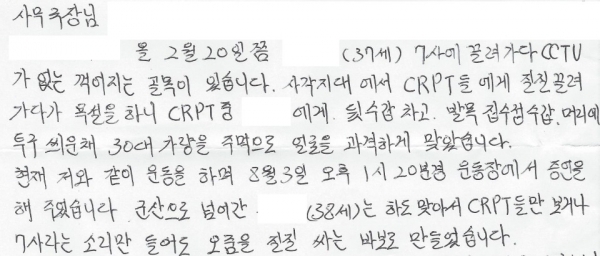 사무국장님
올 2월 20일쯤 (37세) 7사에 끌려가다 CCTV
가 없는 꺽어지는 골목이 있습니다. 사각지대에서 CRPT들에게 질질 끌려
가다가 욕설을 하니 CRPT 중 에게. 뒷수갑 차고, 발목 수갑, 머리에
투구 씌운채 30대 가량을 주먹으로 얼굴을 과격하게 맞았습니다.
현재 저와 같이 운동을 하며 8월 3일 오후 1시 20분경 운동장에서 증언을
해 주었습니다. 군산으로 넘어간 (38세)는 하도 맞아서 CRPT들만 보거나
7사라는 소리만 들어도 오줌을 질질 싸는 바보로 만들었습니다.